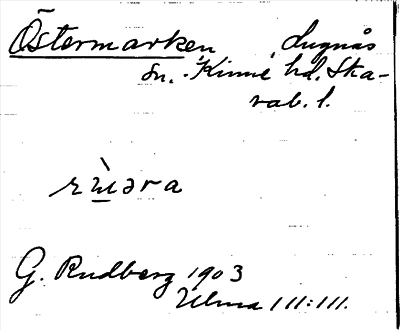 Östermarken, Lugnås
sn. Kinne hd. Ska-
rab. l.
rù̲əra
G. Rudberg 1903
Ulma 111:111.